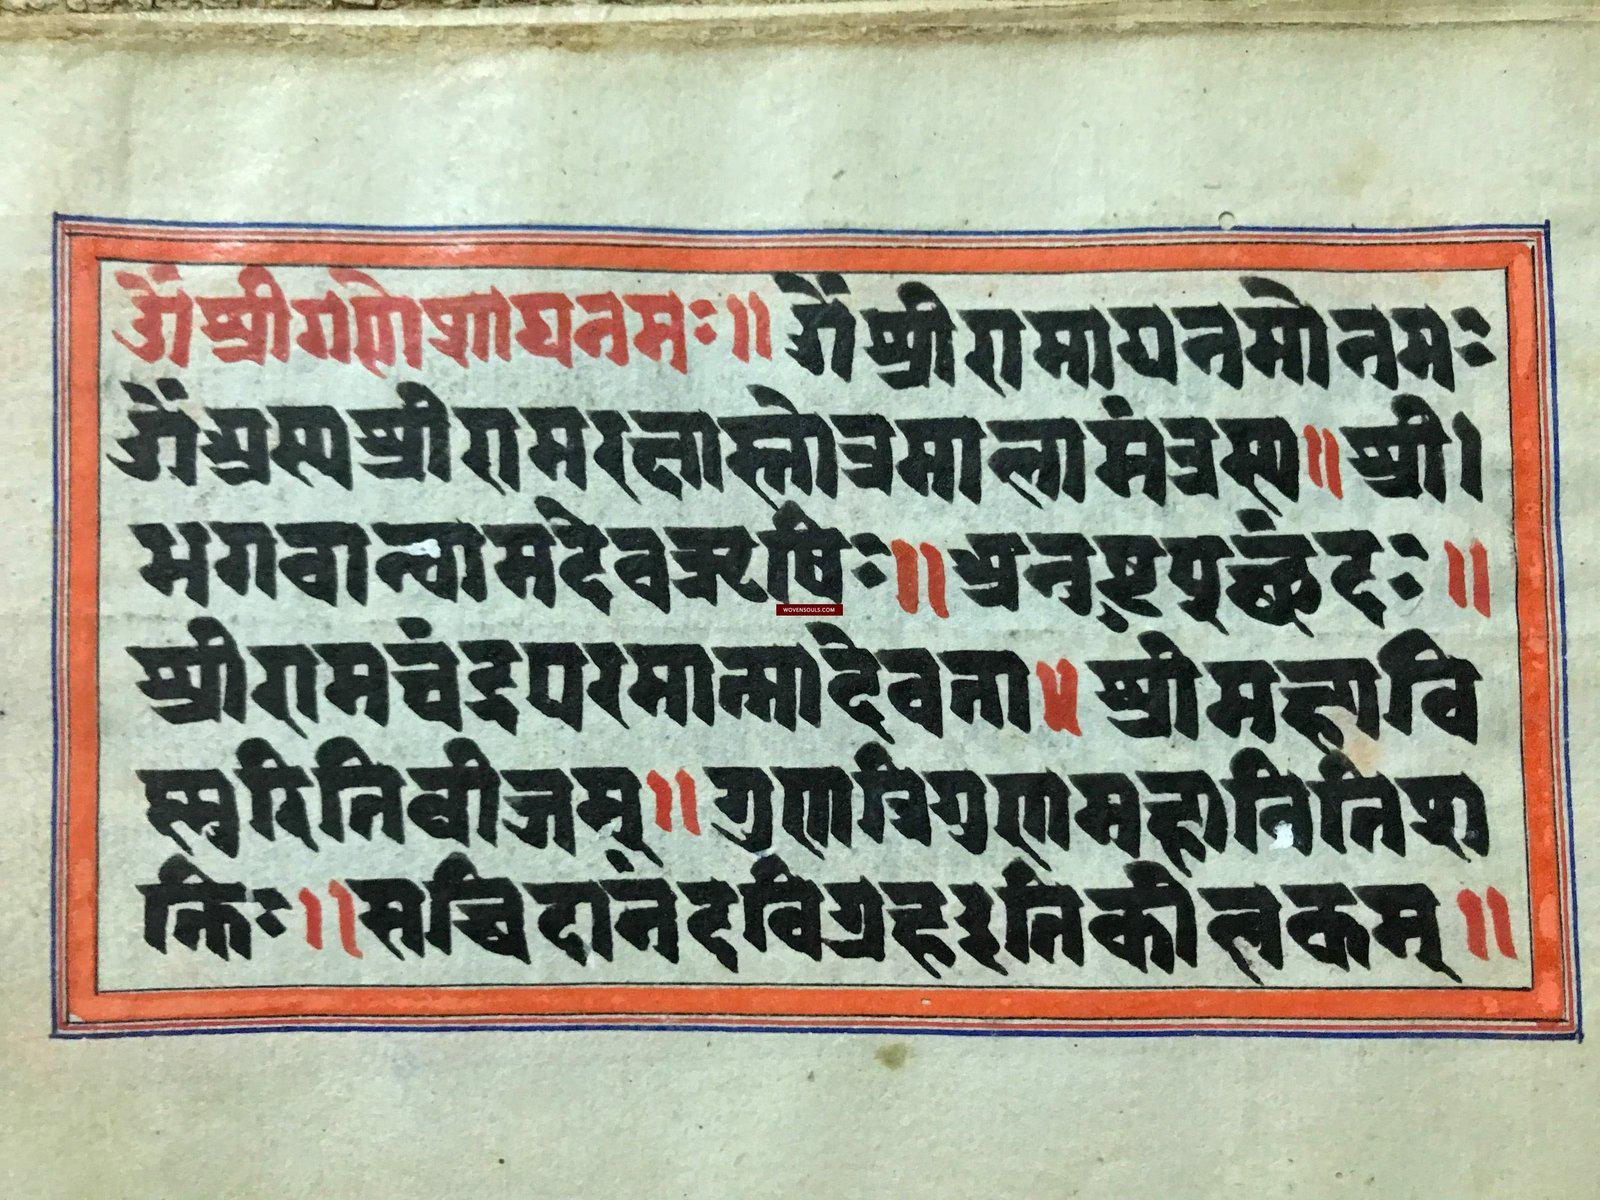 ओँ श्रीगणेशायनमः॥ ओँ श्रीरामायनमोनमः
ओँ अस्यश्रीरामरक्षास्तोत्रमालामंत्रस्य॥ श्री।
भगवान्वामदेवऋषिः॥ अनुष्टुप्छंदः॥
श्रीरामचंद्रपरमात्मादेवता॥ श्रीमहावि
स्नुरितिबीजम्॥ गुणत्रिगुणमहातितिश
क्तिः॥ सच्चिदानंदविग्रहइतिकीलकम्॥
WOVENSOULS.COM